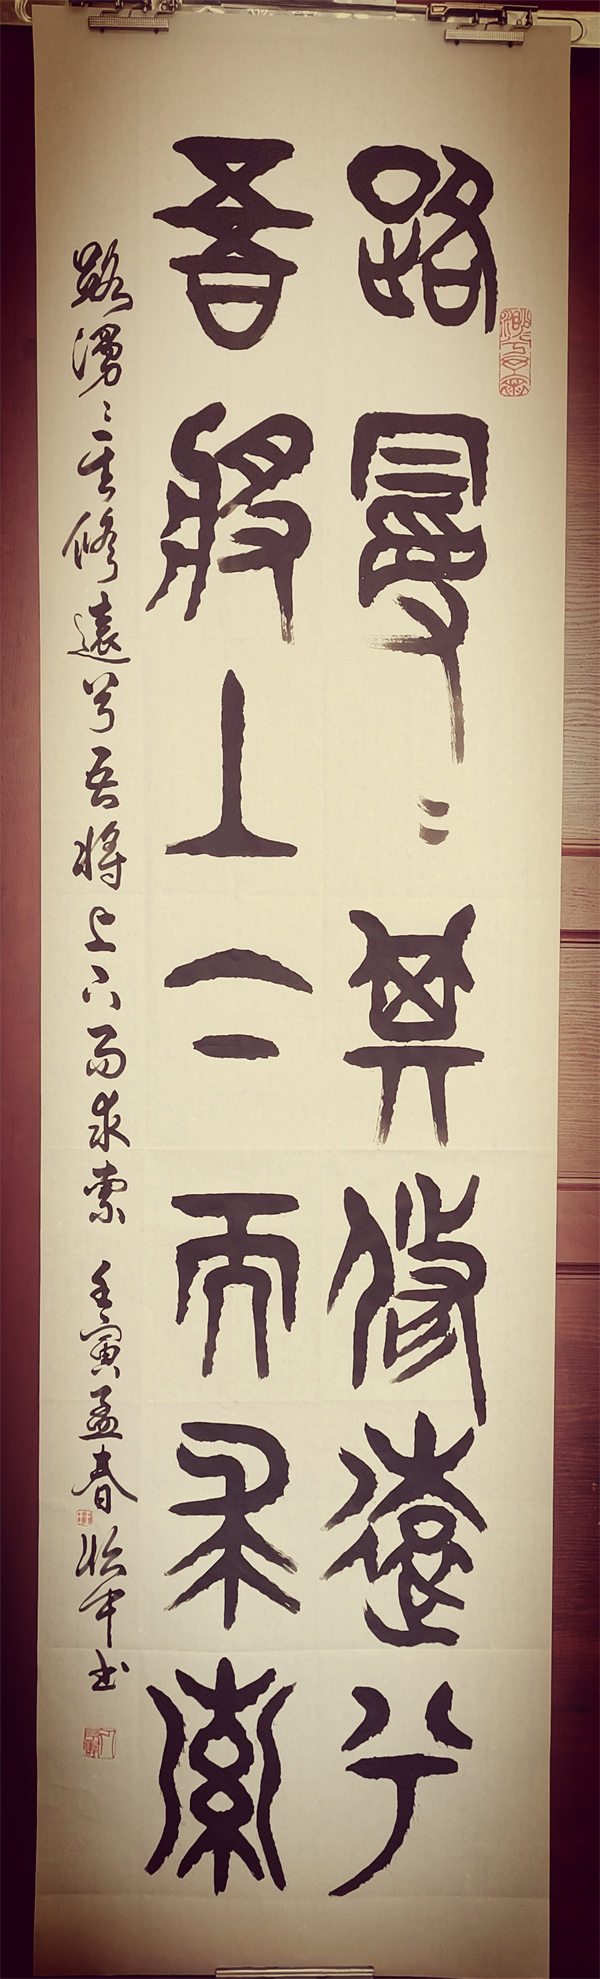 路曼〻其修遠兮
吾將上下而求索
路漫〻其修遠兮吾將上下而求索 壬寅孟春 中书